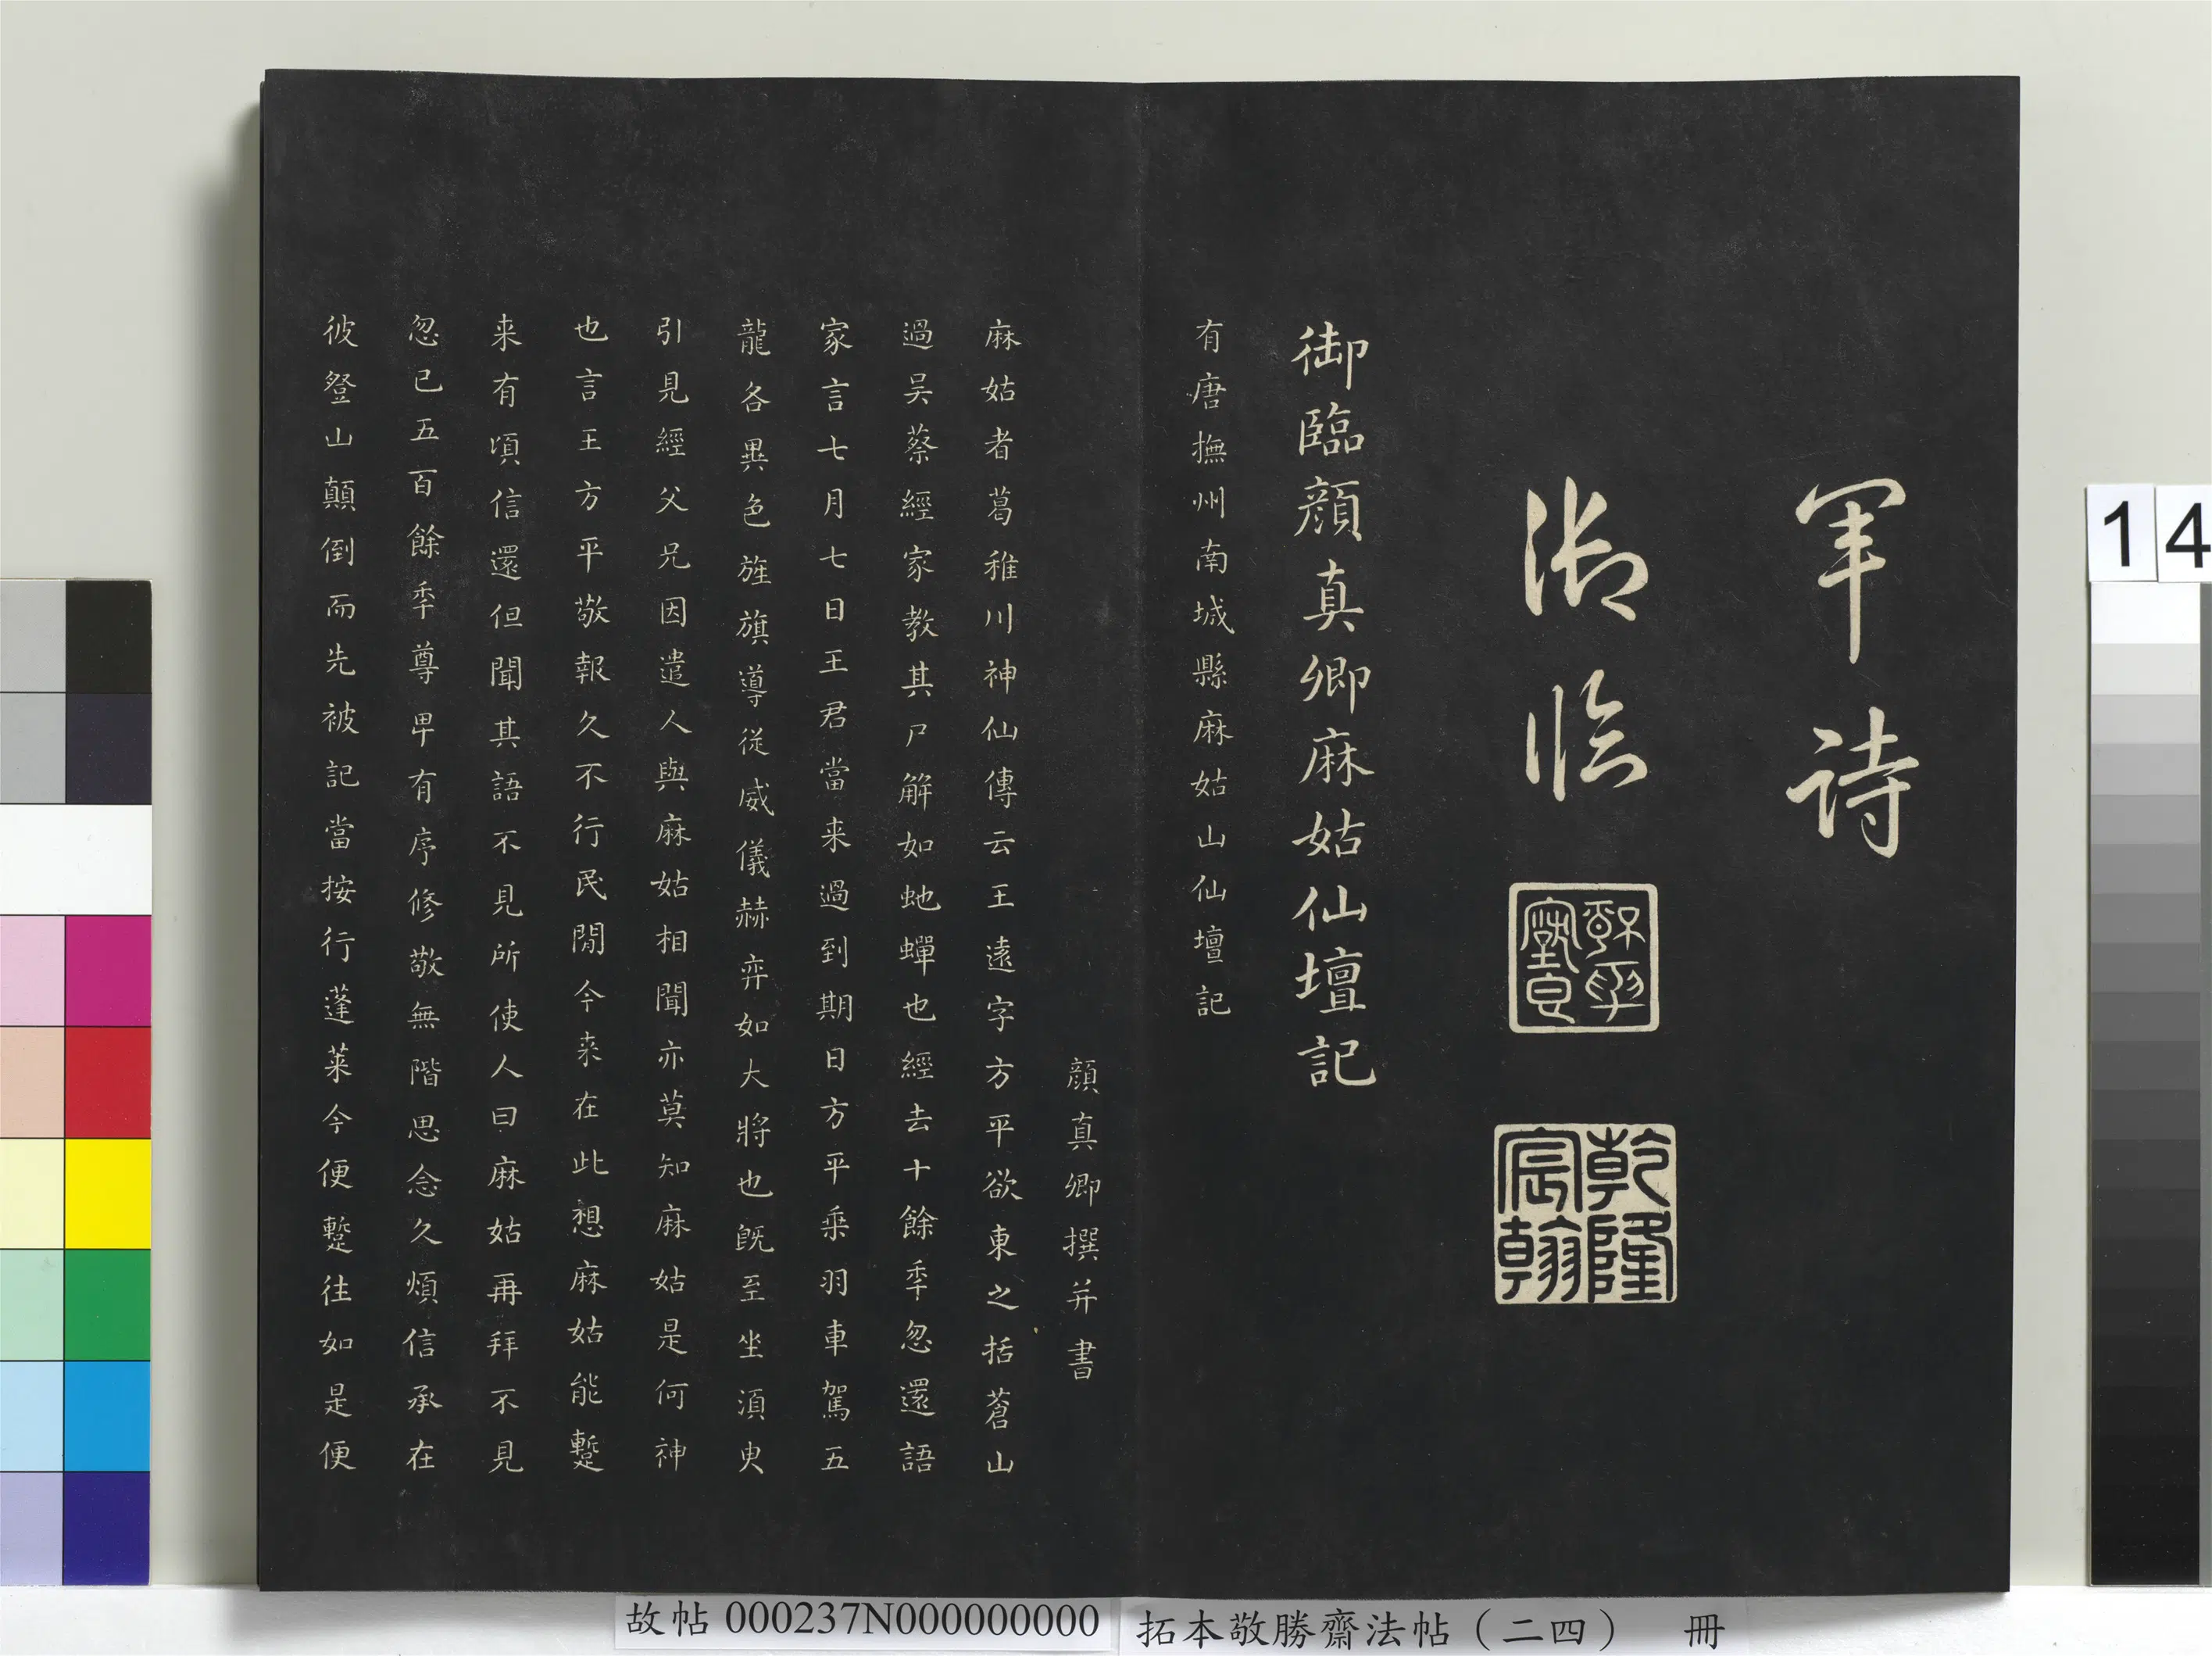 軍詩
御臨
乾隆宸翰
御臨顏真卿麻姑仙壇記
有唐撫州南城縣麻姑山仙壇記
顏真卿撰并書
麻姑者葛稚川神仙傳云王遠字方平欲東之括蒼山
過吴蔡經家教其尸解如虵蟬也經去十餘秊忽還語
家言七月七日王君當来過到期日方平乗羽車駕五
龍各異色旌旗導從威儀赫弈如大將也既至坐湏臾
引見經父兄因遣人與麻姑相聞亦莫知麻姑是何神
也言王方平敬報久不行民間今来在此想麻姑能蹔
来有頃信還但聞其語不見所使人曰麻姑再拜不見
忽已五百餘秊尊卑有序修敬無階思念久煩信承在
彼登山顛倒而先被記當按行蓬萊今便蹔往如是便
14
故帖000237N000000000
拓本敬勝齋法帖（二四） 冊